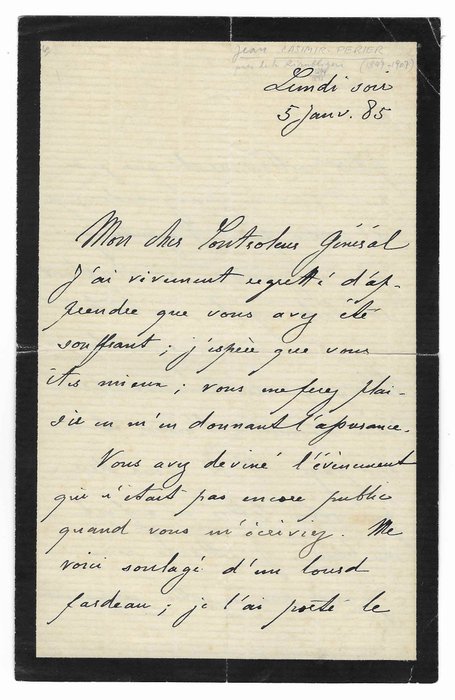 Jean CASIMIR-PERIER
président de la République (1847-1907)
Lundi soir
5 Janv. 85
Mon cher Contrôleur Général
J'ai vivement regretté d'ap-
prendre que vous avez été
souffrant ; j'espère que vous
êtes mieux ; vous me ferez plai-
sir en m'en donnant l'assurance.
Vous avez deviné l'évènement
qui n'était pas encore public
quand vous m'écriviez. Me
voici soulagé d'un lourd
fardeau ; je l'ai porté le